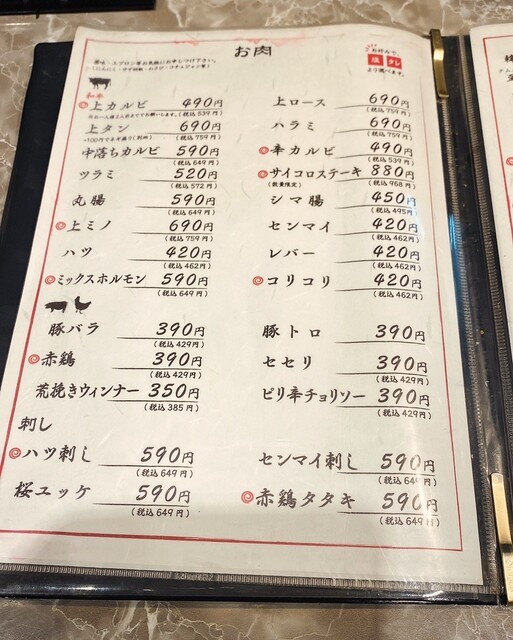 お肉
薬味・エプロン等お気軽にお申しつけ下さい。
(にんにく・ゆず胡椒・わさび・コチュジャン等)
お好みで、
塩 タレ
より選べます。
和牛
上カルビ 490円
(税込539円)
上タン 690円
(税込759円)
中落ちカルビ 590円
(税込649円)
ツラミ 520円
(税込572円)
丸腸 590円
(税込649円)
上ミノ 690円
(税込759円)
ハツ 420円
(税込462円)
ミックスホルモン 590円
(税込649円)
上ロース 690円
(税込759円)
ハラミ 690円
(税込759円)
辛カルビ 490円
(税込539円)
サイコロステーキ 880円
(数量限定) (税込968円)
シマ腸 450円
(税込495円)
センマイ 420円
(税込462円)
レバー 420円
(税込462円)
コリコリ 420円
(税込462円)
豚バラ 390円
(税込429円)
赤鶏 390円
(税込429円)
荒挽きウィンナー 350円
(税込385円)
豚トロ 390円
(税込429円)
セセリ 390円
(税込429円)
ピリ辛チョリソー 390円
(税込429円)
刺し
ハツ刺し 590円
(税込649円)
桜ユッケ 590円
(税込649円)
センマイ刺し 590円
(税込649円)
赤鶏タタキ 590円
(税込649円)